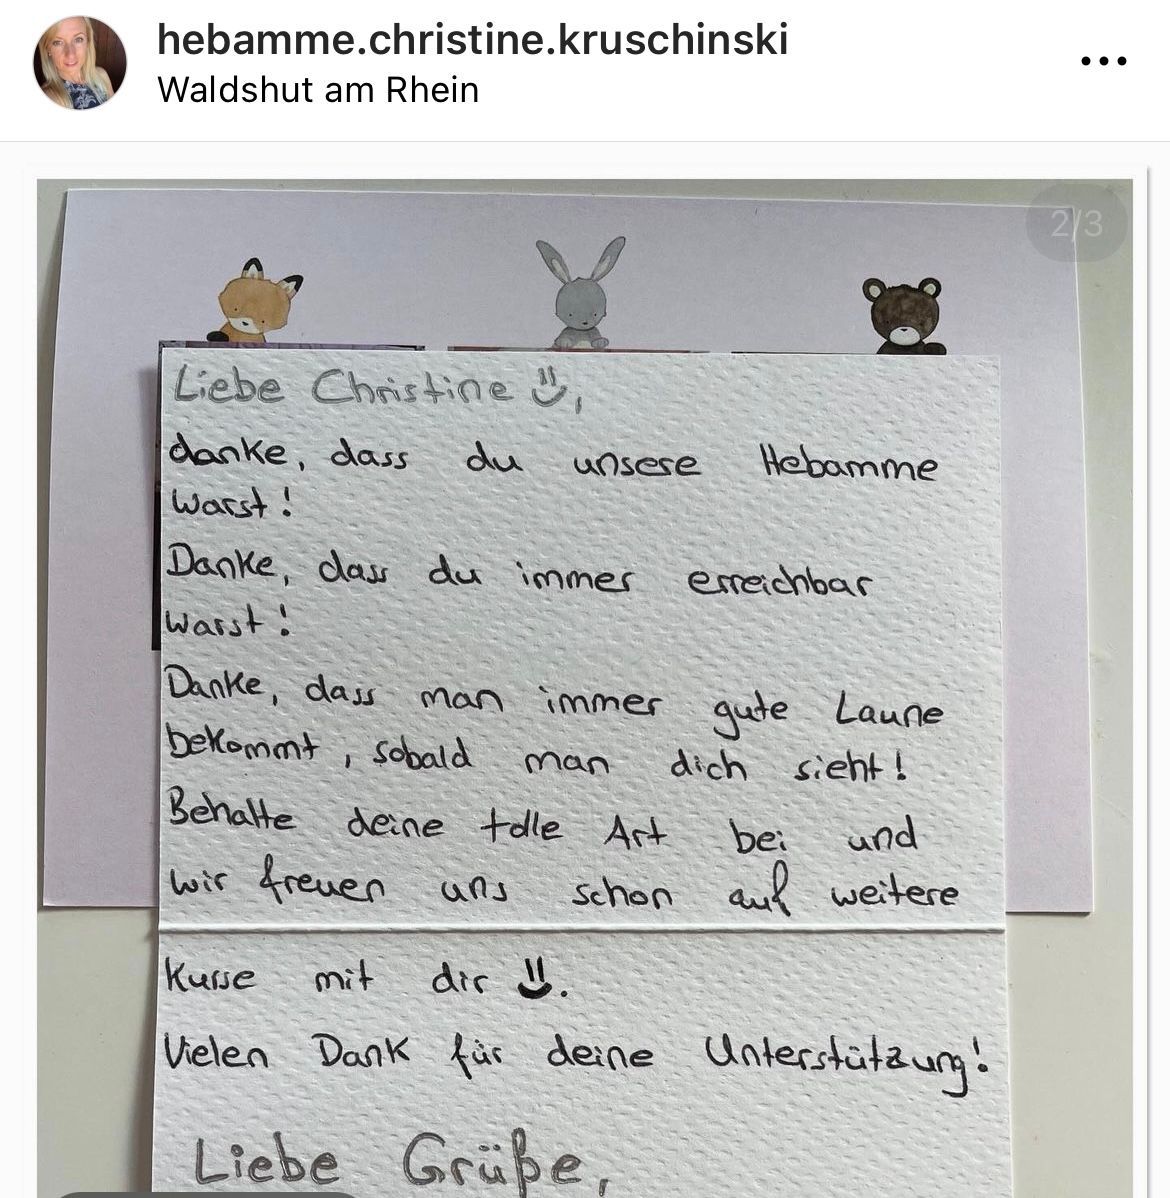 hebamme.christine.kruschinski
Waldshut am Rhein
2/3
Liebe Christine ,
danke, dass du unsere Hebamme
warst!
Danke, dass du immer erreichbar
warst!
Danke, dass man immer gute Laune
bekommt, sobald man dich sieht!
Behalte deine tolle Art bei und
wir freuen uns schon auf weitere
Kurse mit dir .
Vielen Dank für deine Unterstützung!
Liebe Grüße,